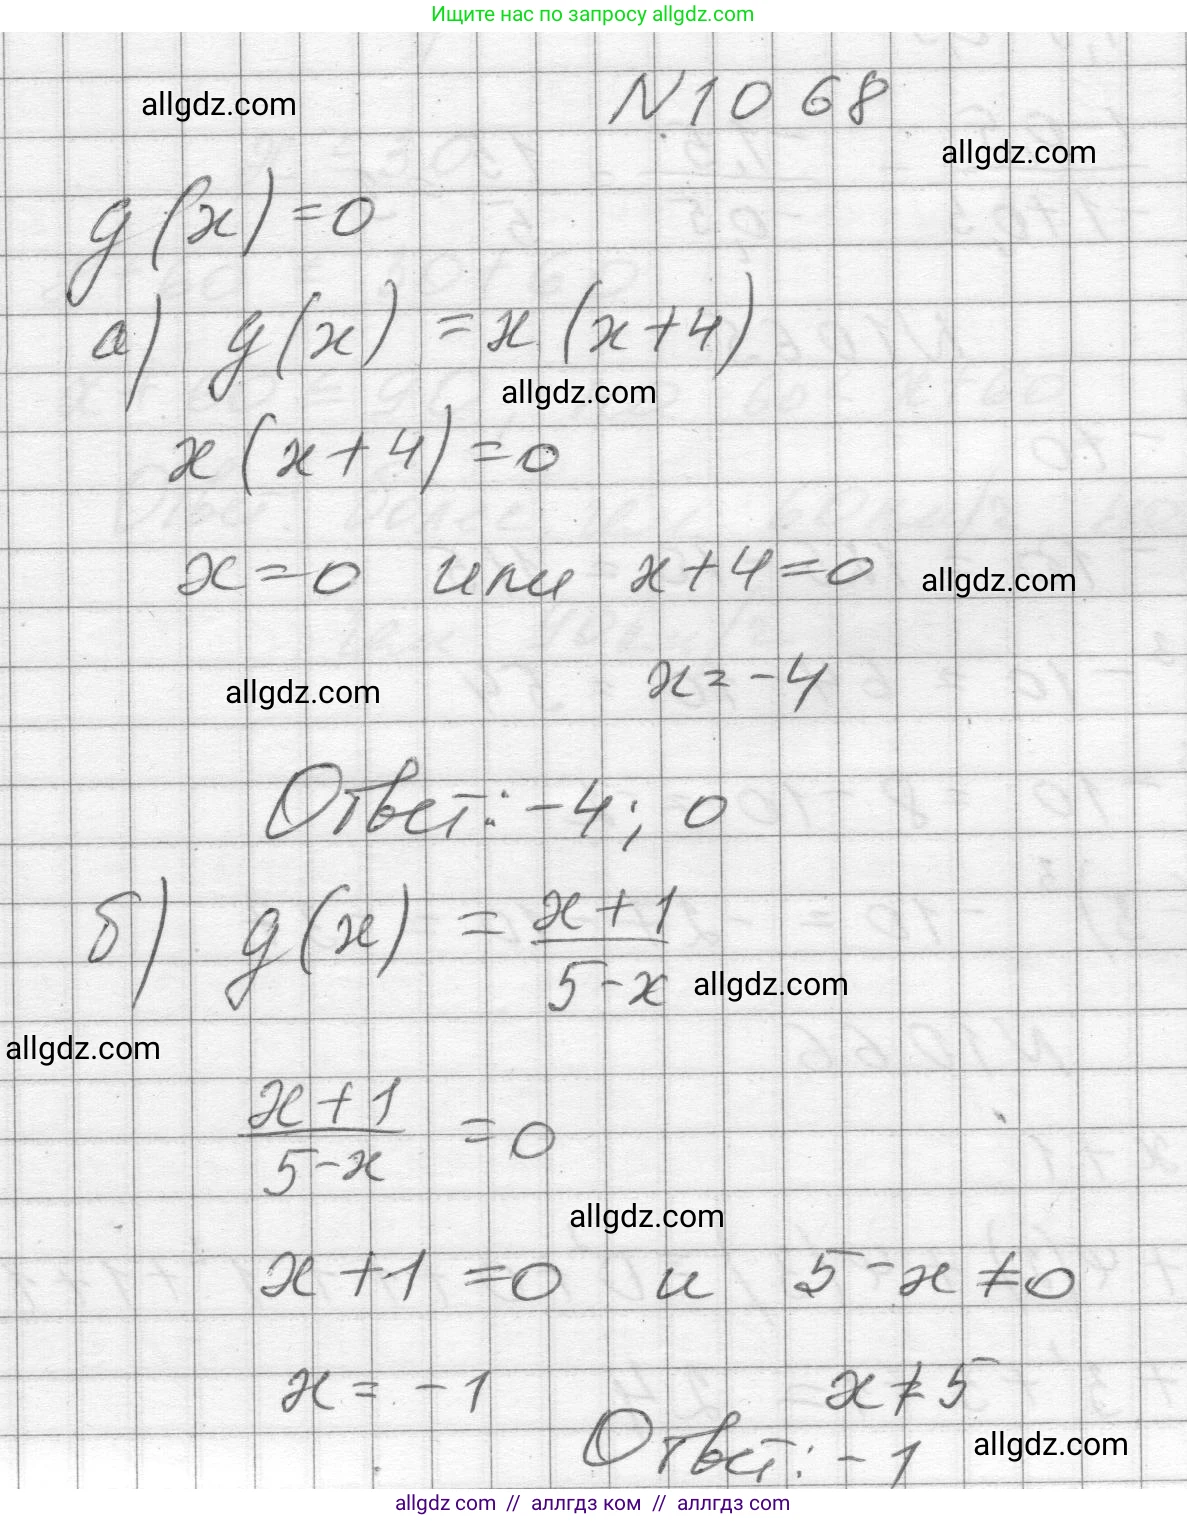 Ищите нас по запросу allgdz.com
allgdz.com
N 1068
allgdz.com
g(x)=0
а) g(x) = x(x+4)
allgdz.com
x(x+4)=0
x=0 или x+4=0
allgdz.com
allgdz.com
x=-4
Ответ: -4; 0
б) g(x) = \frac{x+1}{5-x}
allgdz.com
allgdz.com
\frac{x+1}{5-x} = 0
allgdz.com
x+1=0 и 5-x≠0
x=-1 x≠5
Ответ: -1
allgdz.com
allgdz.com // аллгдз ком // allgdz.com